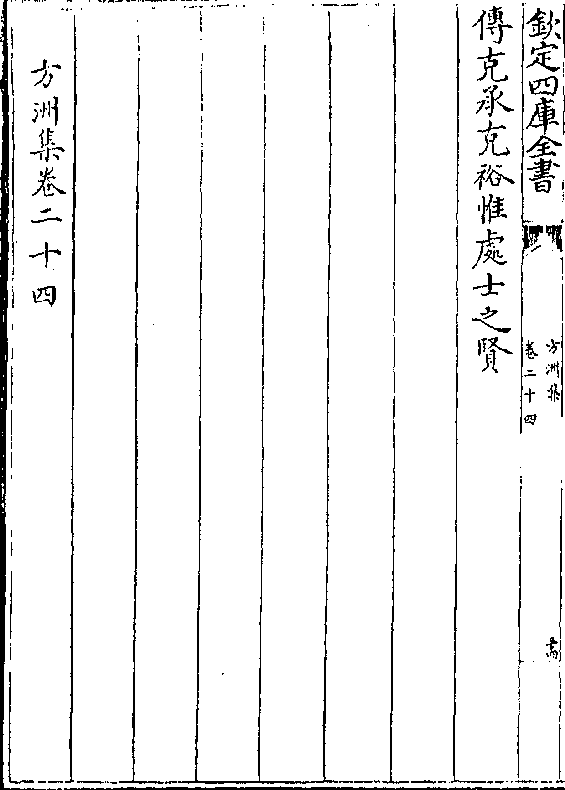 欽定四庫全書
方洲集
卷二十四
傳克承克裕惟處士之賢
方洲集卷二十四